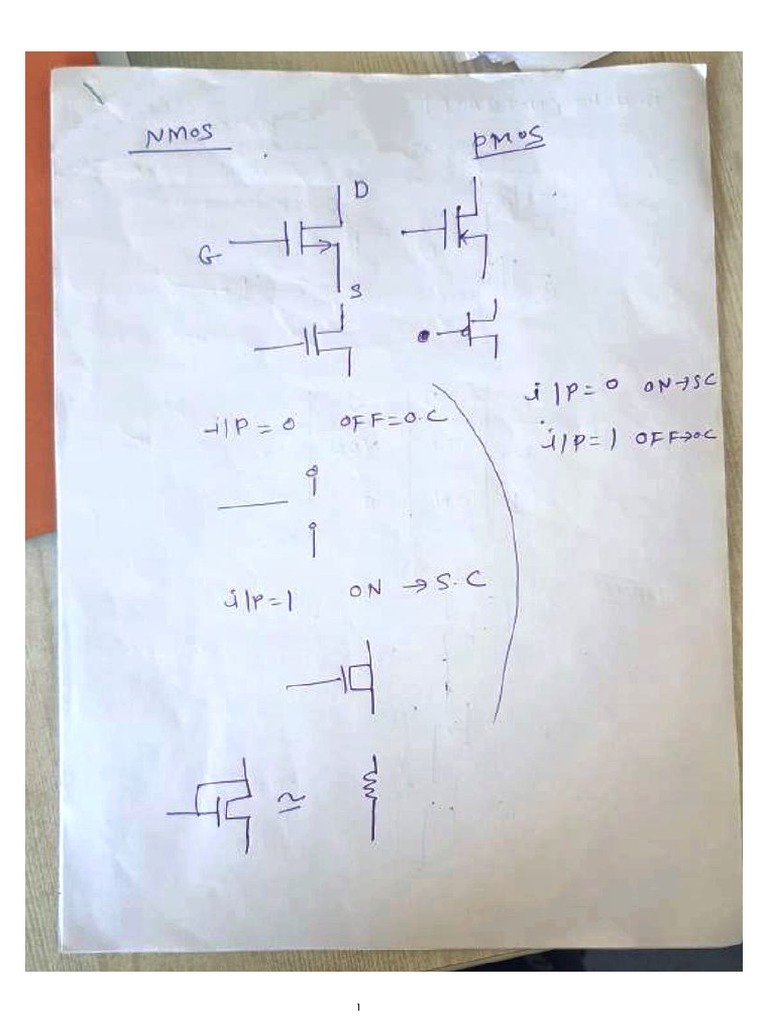 NMOS
PMOS
D
G
S
i/P = 0 OFF = O.C
i/P = 0 ON → SC
i/P = 1 OFF → O.C
i/P = 1 ON → S.C
≃
1